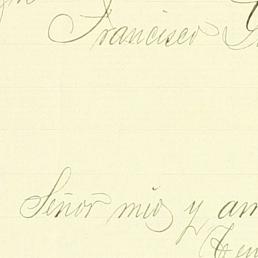 Francisco
Señor mio y am